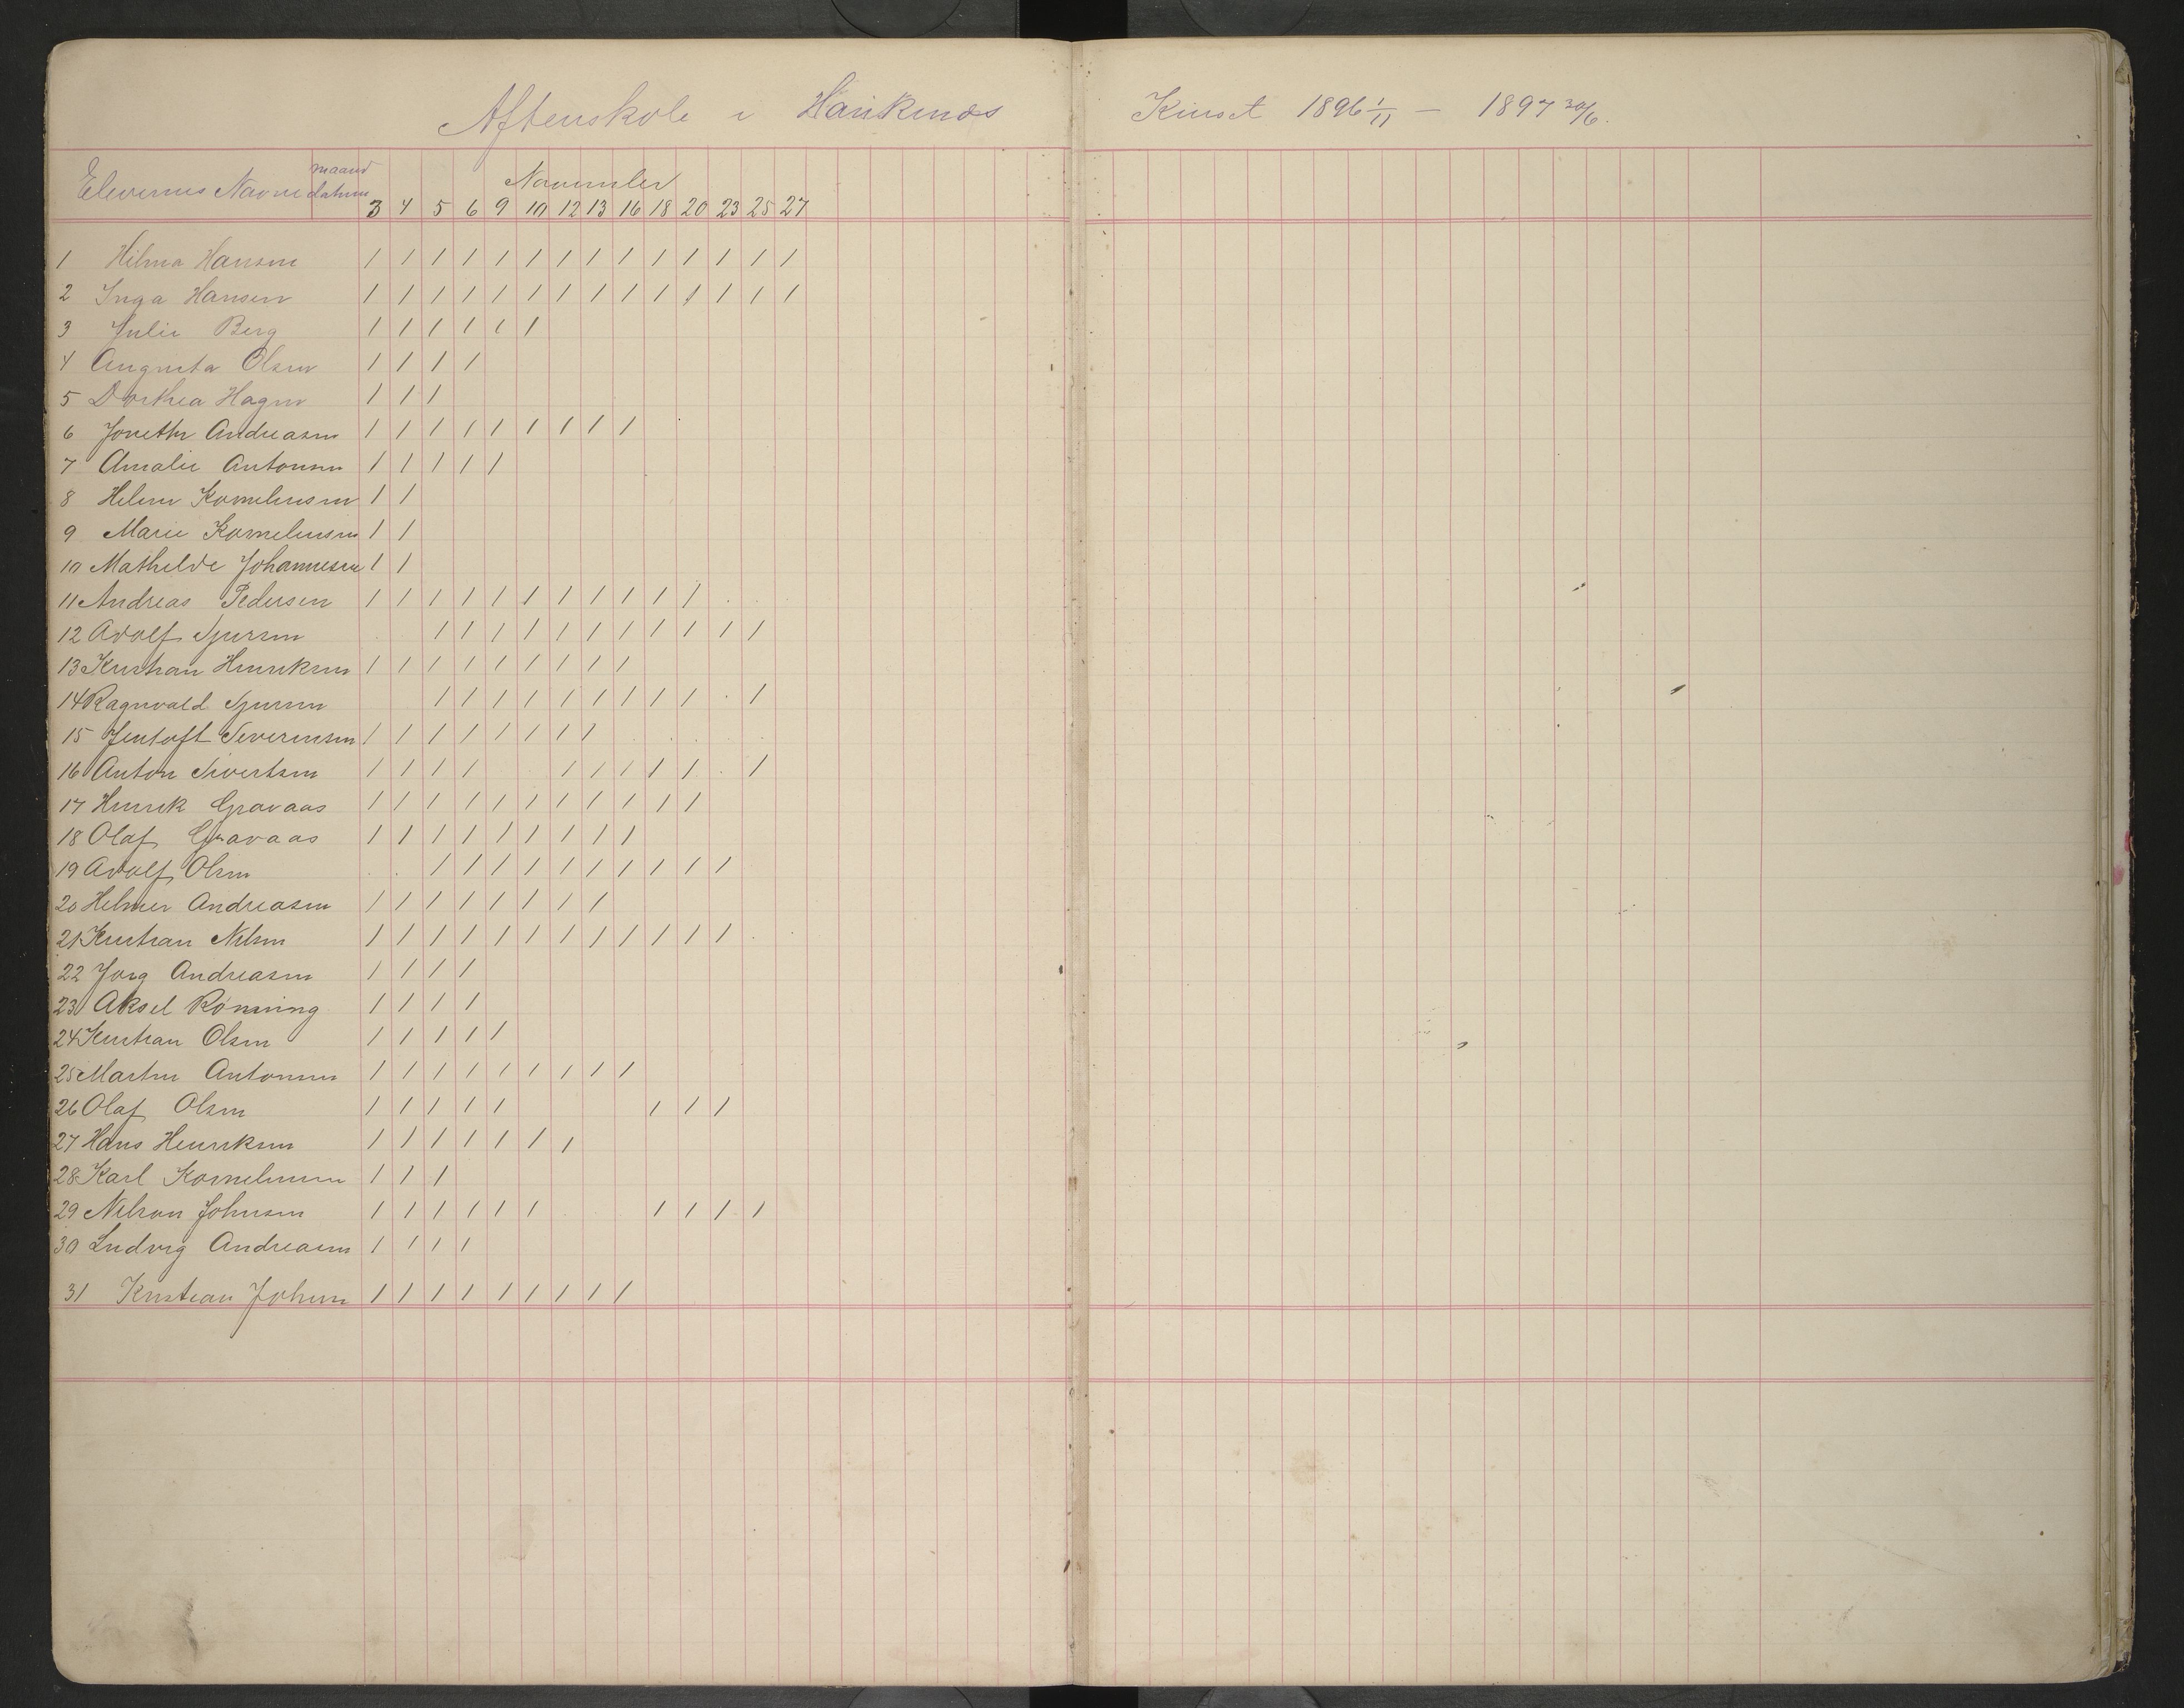 Aftenskole i Haukenæs Kurset 1896 1/11 — 1897 30/6.
Elevernes Navne maaned datum November
3 4 5 6 9 10 12 13 16 18 20 23 25 27
1 Hilma Hansen / / / / / / / / / / / / / /
2 Inga Hansen / / / / / / / / / / / / / /
3 Julie Berg / / / / / /
4 Augusta Olsen / / / /
5 Dorthea Hagen / / /
6 Jorethe Andreasen / / / / / / / / /
7 Amalie Antonsen / / / / /
8 Helene Korneliussen / /
9 Marie Korneliussen / /
10 Mathilde Johannesen / /
11 Andreas Pedersen / / / / / / / / / / /
12 Adolf Sjursen / / / / / / / / / / /
13 Kristian Henriksen / / / / / / / / /
14 Ragnvald Sjursen / / / / / / / / / /
15 Jentoft Severinsen / / / / / / / /
16 Anton Sivertsen / / / / / / / / / /
17 Henrik Gravaas / / / / / / / / / / /
18 Olaf Gravaas / / / / / / / / /
19 Adolf Olsen / / / / / / / / / /
20 Helmer Andreasen / / / / / / / /
21 Kristian Nilsen / / / / / / / / / / / /
22 Jorg Andreasen / / / /
23 Aksel Rønning / / / /
24 Kristian Olsen / / / / /
25 Martin Antonsen / / / / / / / / /
26 Olaf Olsen / / / / / / / /
27 Hans Henriksen / / / / / / /
28 Karl Korneliussen / / /
29 Nilson Johnsen / / / / / / / / / /
30 Ludvig Andreasen / / / /
31 Kristian Johnsen / / / / / / / / /